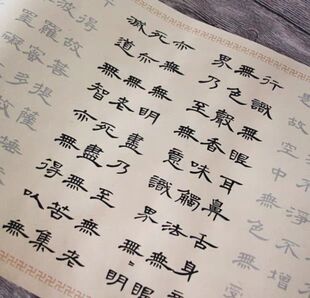 不淨不增
是故空中無色
行識無眼耳鼻舌身
無色聲香味觸法無眼
界乃至無意識界無無明
亦無無明盡乃至無老
死亦無老死盡無苦集
滅道無智亦無得以
得故菩提薩